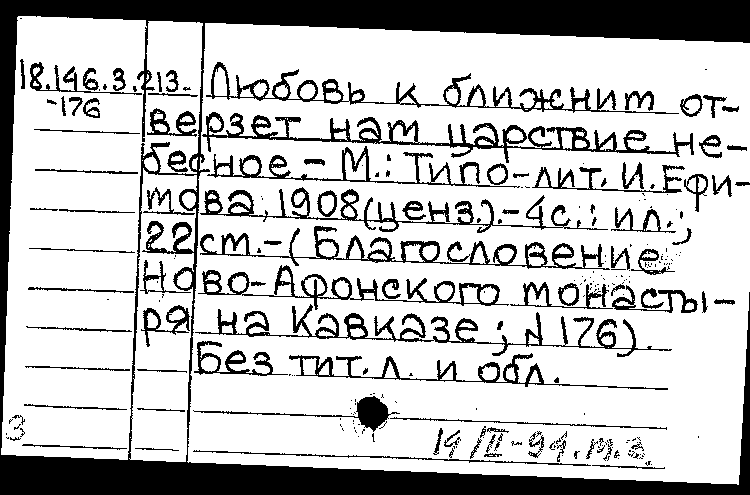 18.146.3.213. Любовь к ближним от-
-176
верзет нам царствие не-
бесное.- М.: Типо-лит. И.Ефи-
мова, 1908(ценз.).- 4с.: ил.;
22см.- (Благословение
Ново-Афонского монасты-
ря на Кавказе; № 176).
Без тит. л. и обл.
3
14/II-94. м.з.